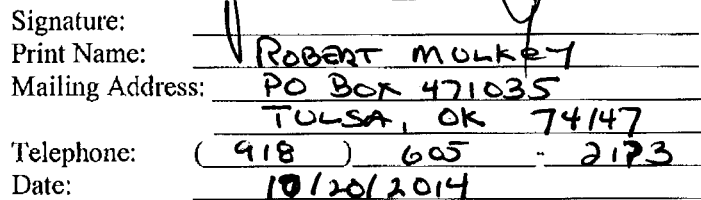 Signature:
Print Name: ROBERT MULKEY
Mailing Address: PO BOX 471035
TULSA, OK 74147
Telephone: (918) 605 - 2173
Date: 10/20/2014